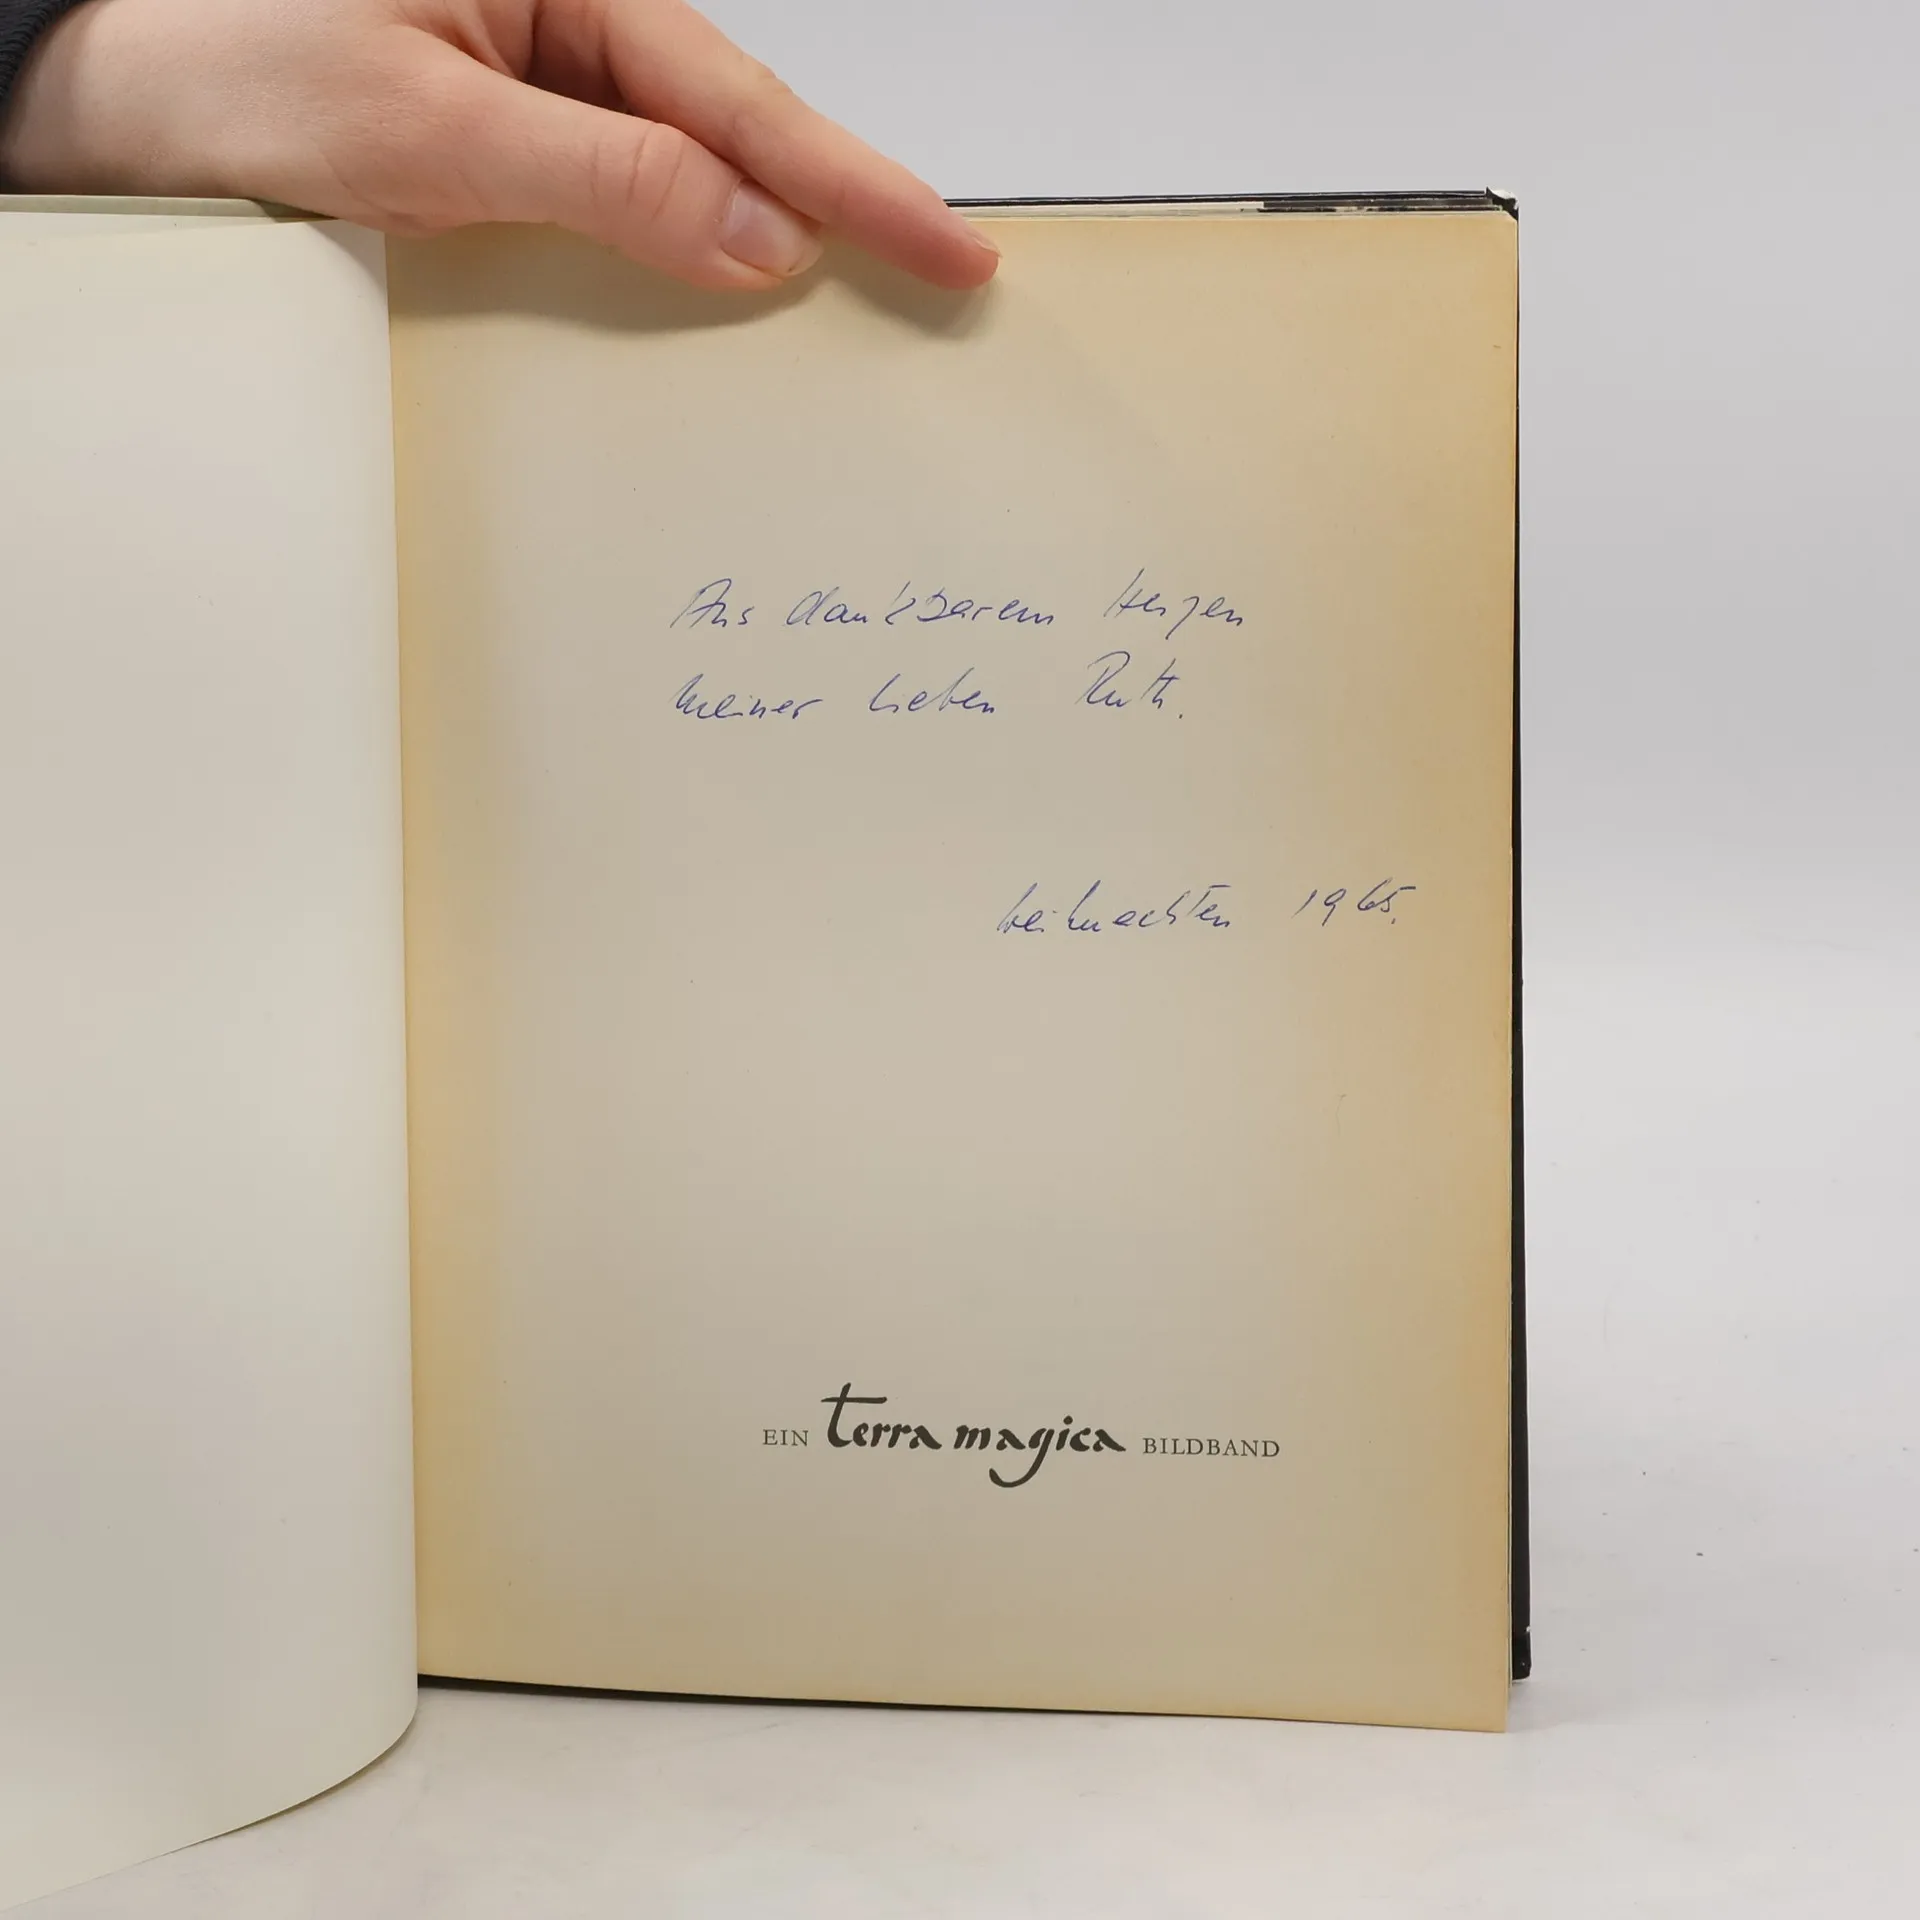 Aus dankbarem Herzen
meiner lieben Ruth.
Weihnachten 1965.
EIN terra magica BILDBAND